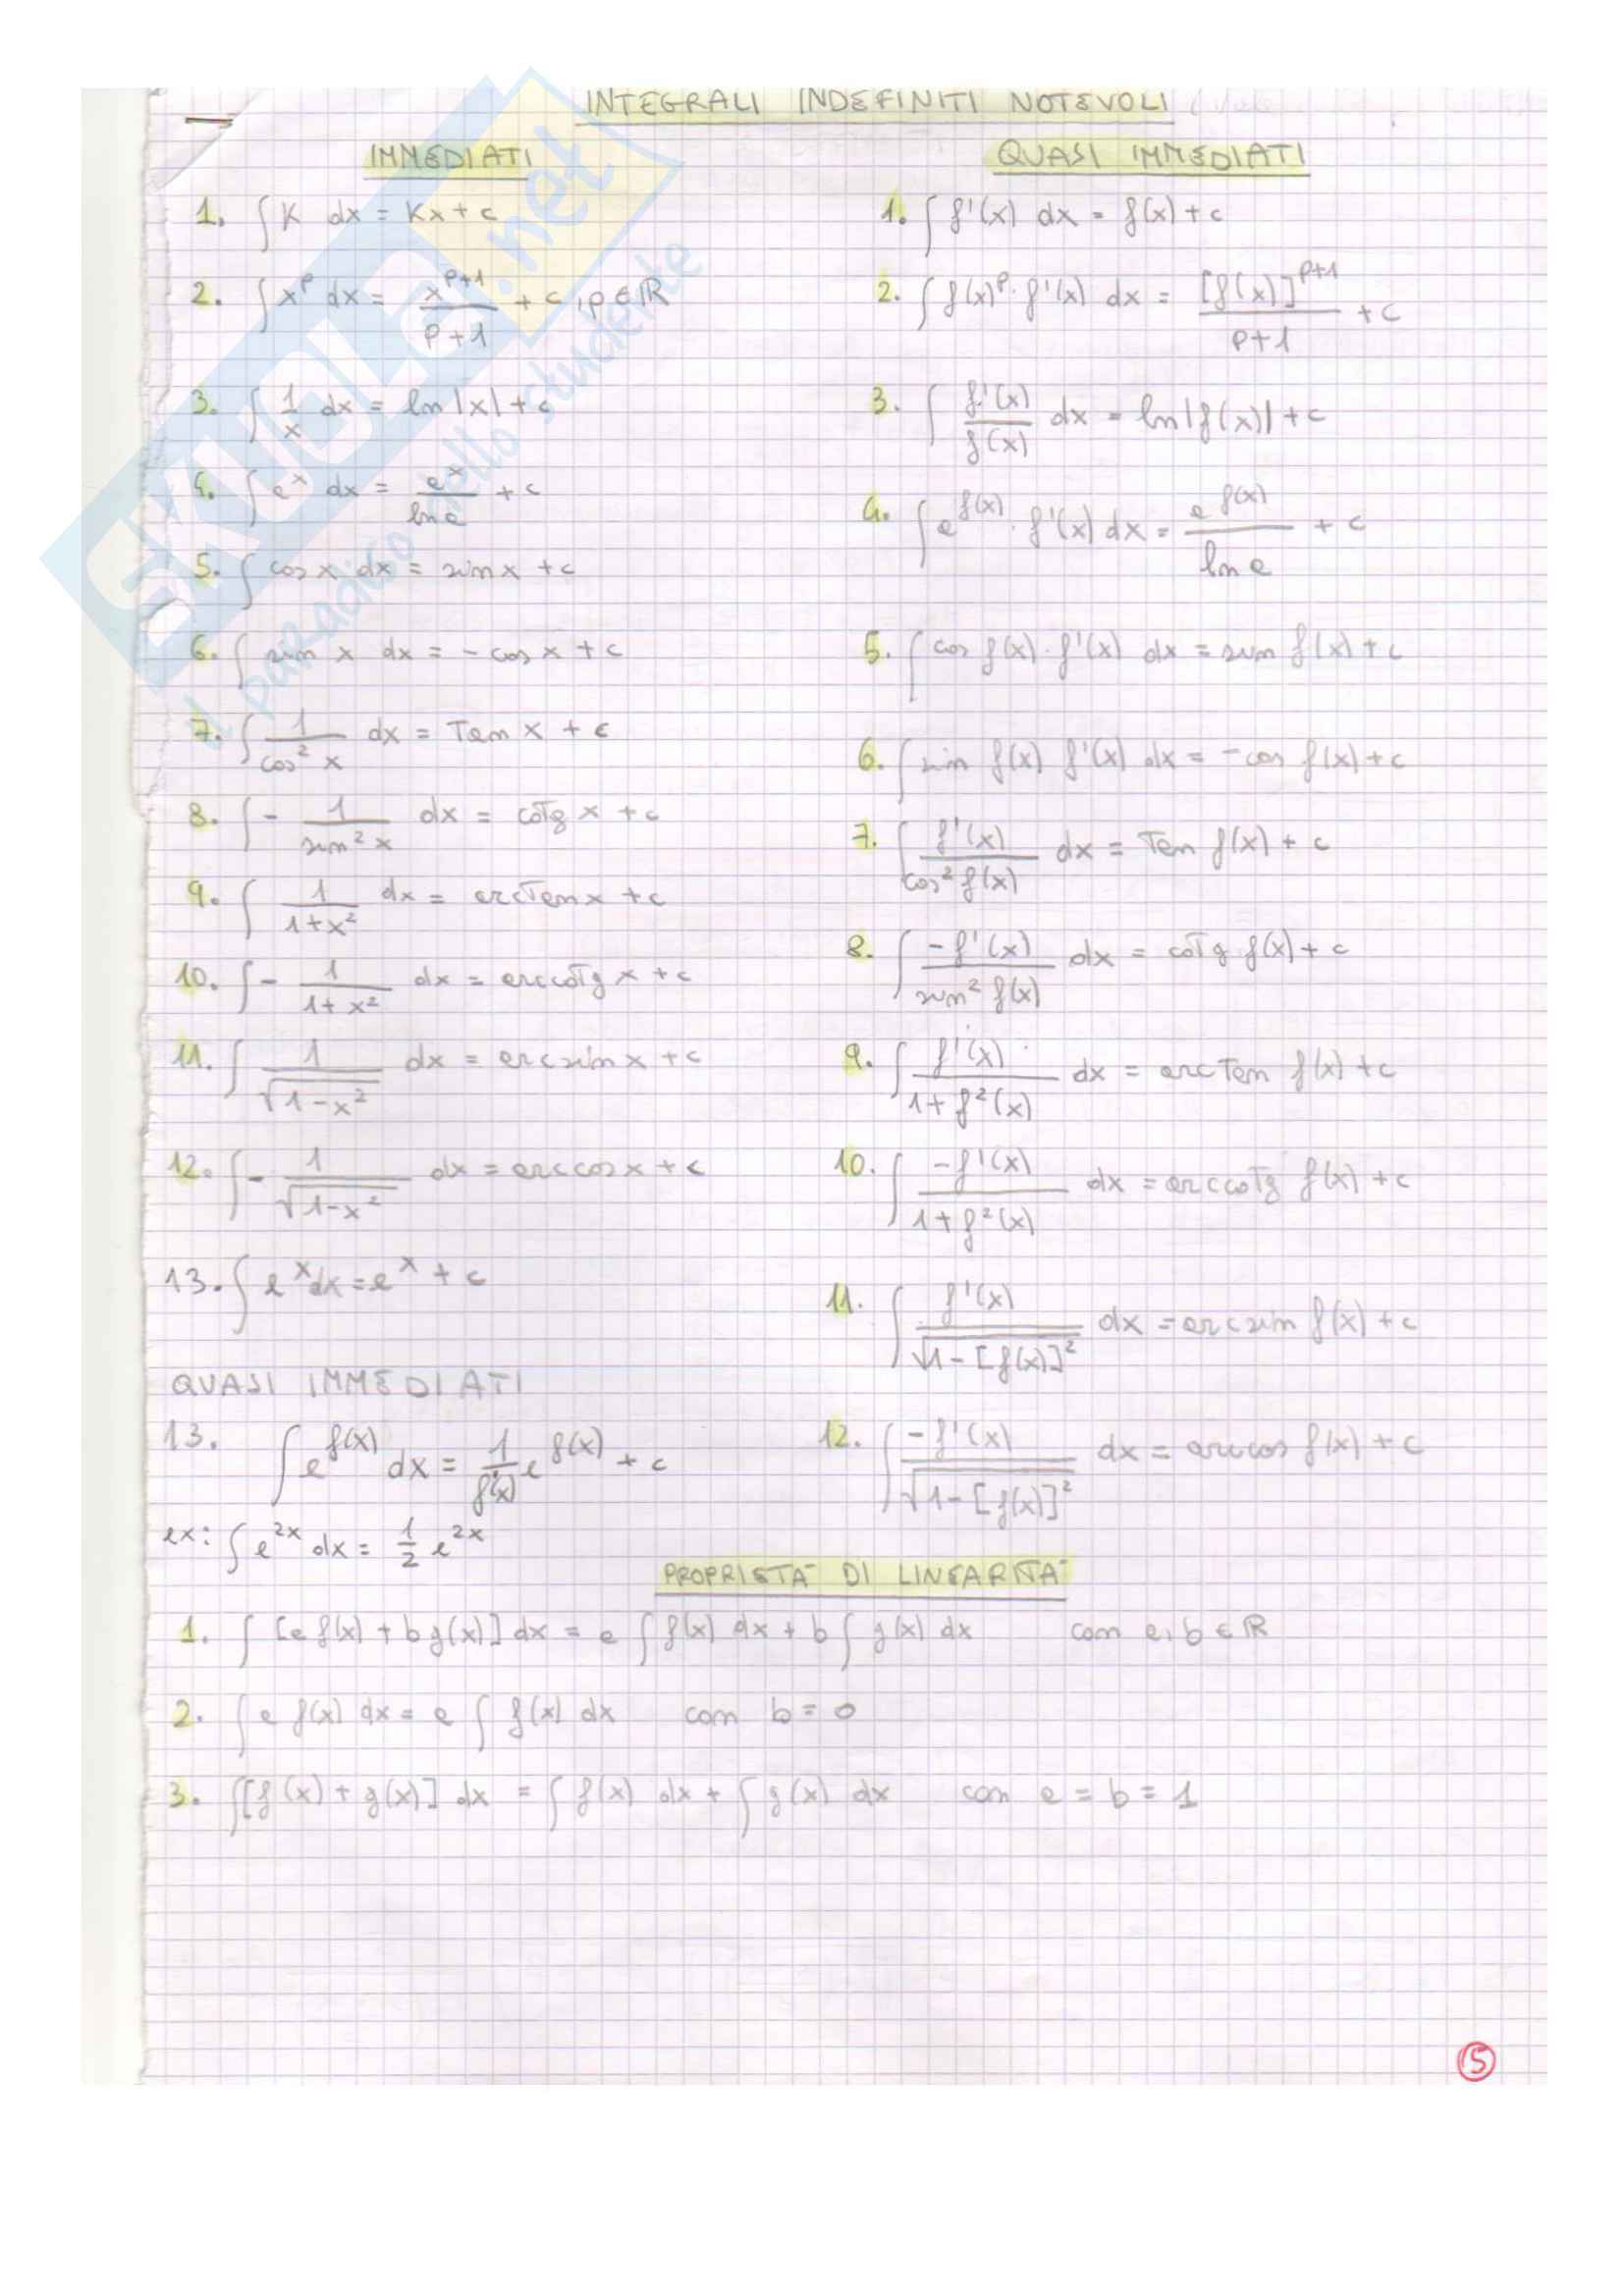 INTEGRALI INDEFINITI NOTEVOLI
IMMEDIATI
1. ∫ K dx = Kx + c
2. ∫ x^p dx = x^(p+1)/(p+1) + c, p ∈ ℝ
3. ∫ 1/x dx = ln |x| + c
4. ∫ a^x dx = a^x/ln a + c
5. ∫ cos x dx = sin x + c
6. ∫ sin x dx = - cos x + c
7. ∫ 1/cos² x dx = Tan x + c
8. ∫ - 1/sin² x dx = cotg x + c
9. ∫ 1/(1+x²) dx = arcTan x + c
10. ∫ - 1/(1+x²) dx = arccotg x + c
11. ∫ 1/√(1-x²) dx = arcsin x + c
12. ∫ - 1/√(1-x²) dx = arccos x + c
13. ∫ e^x dx = e^x + c
QUASI IMMEDIATI
13. ∫ e^f(x) dx = 1/f'(x) e^f(x) + c
ex: ∫ e^2x dx = 1/2 e^2x
QUASI IMMEDIATI
1. ∫ f'(x) dx = f(x) + c
2. ∫ f(x)^p · f'(x) dx = [f(x)]^(p+1)/(p+1) + c
3. ∫ f'(x)/f(x) dx = ln |f(x)| + c
4. ∫ a^f(x) · f'(x) dx = a^f(x)/ln a + c
5. ∫ cos f(x) · f'(x) dx = sin f(x) + c
6. ∫ sin f(x) f'(x) dx = - cos f(x) + c
7. ∫ f'(x)/cos² f(x) dx = Tan f(x) + c
8. ∫ -f'(x)/sin² f(x) dx = cotg f(x) + c
9. ∫ f'(x)/(1+f²(x)) dx = arcTan f(x) + c
10. ∫ -f'(x)/(1+f²(x)) dx = arccotg f(x) + c
11. ∫ f'(x)/√(1-[f(x)]²) dx = arcsin f(x) + c
12. ∫ -f'(x)/√(1-[f(x)]²) dx = arccos f(x) + c
PROPRIETA' DI LINEARITA'
1. ∫ [a f(x) + b g(x)] dx = a ∫ f(x) dx + b ∫ g(x) dx con a, b ∈ ℝ
2. ∫ a f(x) dx = a ∫ f(x) dx con b = 0
3. ∫ [f(x) + g(x)] dx = ∫ f(x) dx + ∫ g(x) dx con a = b = 1
5
SKUOLA.net
il paradiso dello studente